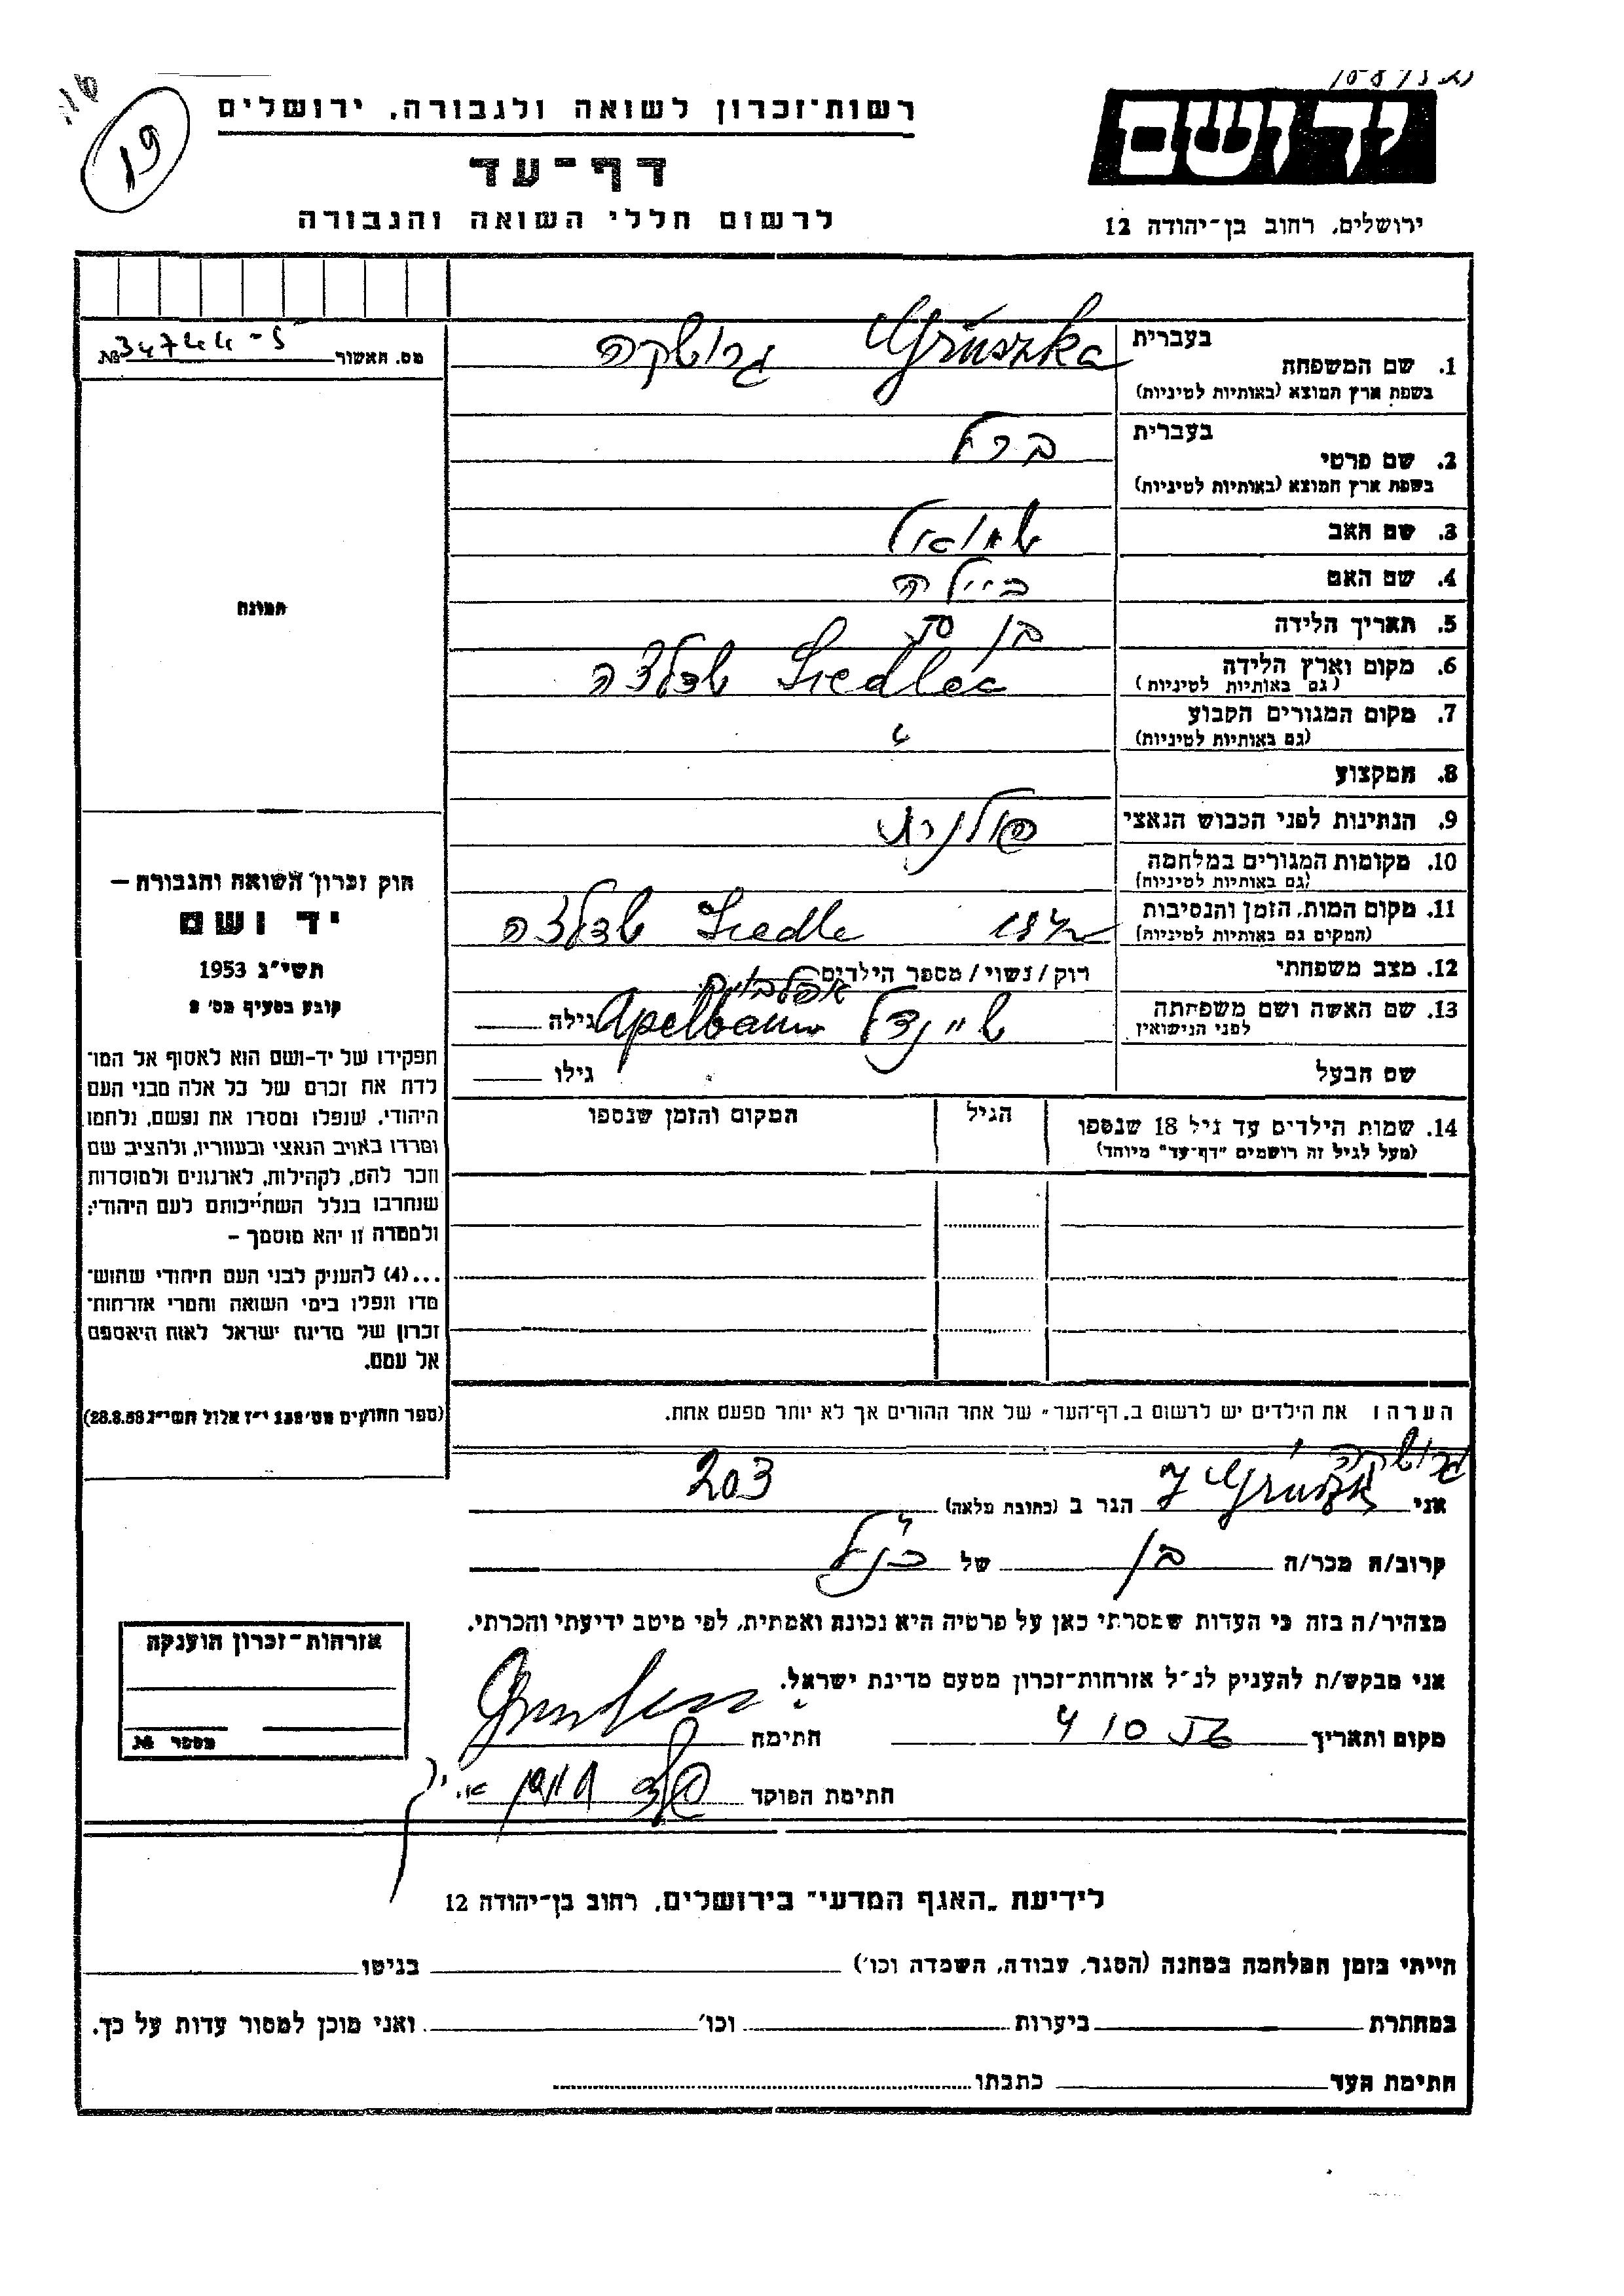 רשות־זכרון לשואה ולגבורה, ירושלים
דף־עד
לרשום חללי השואה והגבורה
יד ושם
ירושלים, רחוב בן־יהודה 12
19
מס. האשור № 34744-5
תמונה
בעברית
1. שם המשפחה Gruszka גרושקה
בשפת ארץ המוצא (באותיות לטיניות)
בעברית
2. שם פרטי ברל
בשפת ארץ המוצא (באותיות לטיניות)
3. שם האב שמואל
4. שם האם ביילה
5. תאריך הלידה בן
6. מקום וארץ הלידה Siedlce שדלצה
(גם באותיות לטיניות)
7. מקום המגורים הקבוע "
(גם באותיות לטיניות)
8. המקצוע
9. הנתינות לפני הכבוש הנאצי פולנית
10. מקומות המגורים במלחמה
(גם באותיות לטיניות)
11. מקום המות, הזמן והנסיבות Siedle שדלצה
(המקום גם באותיות לטיניות)
12. מצב משפחתי רוק/נשוי/מספר הילדים
אפלבוים
13. שם האשה ושם משפחתה שיינדל Apelbaum גילה
לפני הנישואין
שם הבעל גילו
14. שמות הילדים עד גיל 18 שנספו הגיל המקום והזמן שנספו
(מעל לגיל זה רושמים "דף־עד" מיוחד)
הערה: את הילדים יש לרשום ב„דף־העד" של אחד ההורים אך לא יותר מפעם אחת.
חוק זכרון השואה והגבורה —
יד ושם
תשי״ג 1953
קובע בסעיף מס׳ 2
תפקידו של יד-ושם הוא לאסוף אל המו־
לדת את זכרם של כל אלה מבני העם
היהודי, שנפלו ומסרו את נפשם, נלחמו
ומרדו באויב הנאצי ובעוזריו, ולהציב שם
וזכר להם, לקהילות, לארגונים ולמוסדות
שנחרבו בגלל השתייכותם לעם היהודי;
ולמטרה זו יהא מוסמך –
...(4) להעניק לבני העם היהודי שהוש־
מדו ונפלו בימי השואה והמרי אזרחות־
זכרון של מדינת ישראל לאות היאספם
אל עמם.
(ספר החוקים מס׳ 132 י״ז אלול תשי״ג 28.8.53)
גרושקה י
אני J Gruszka הגר ב (כתובת מלאה) 203
קרוב/ה מכר/ה בן של הנ"ל
מצהיר/ה בזה כי העדות שמסרתי כאן על פרטיה היא נכונה ואמתית, לפי מיטב ידיעתי והכרתי.
אני מבקש/ת להעניק לנ״ל אזרחות־זכרון מטעם מדינת ישראל.
מקום ותאריך חתימה
חתימת הפוקד
אזרחות־זכרון הוענקה
מספר №
לידיעת „האגף המדעי" בירושלים, רחוב בן־יהודה 12
הייתי בזמן המלחמה במחנה (הסגר, עבודה, השמדה וכו׳) בגיטו
במחתרת ביערות וכו׳ ואני מוכן למסור עדות על כך.
חתימת העד כתבתו